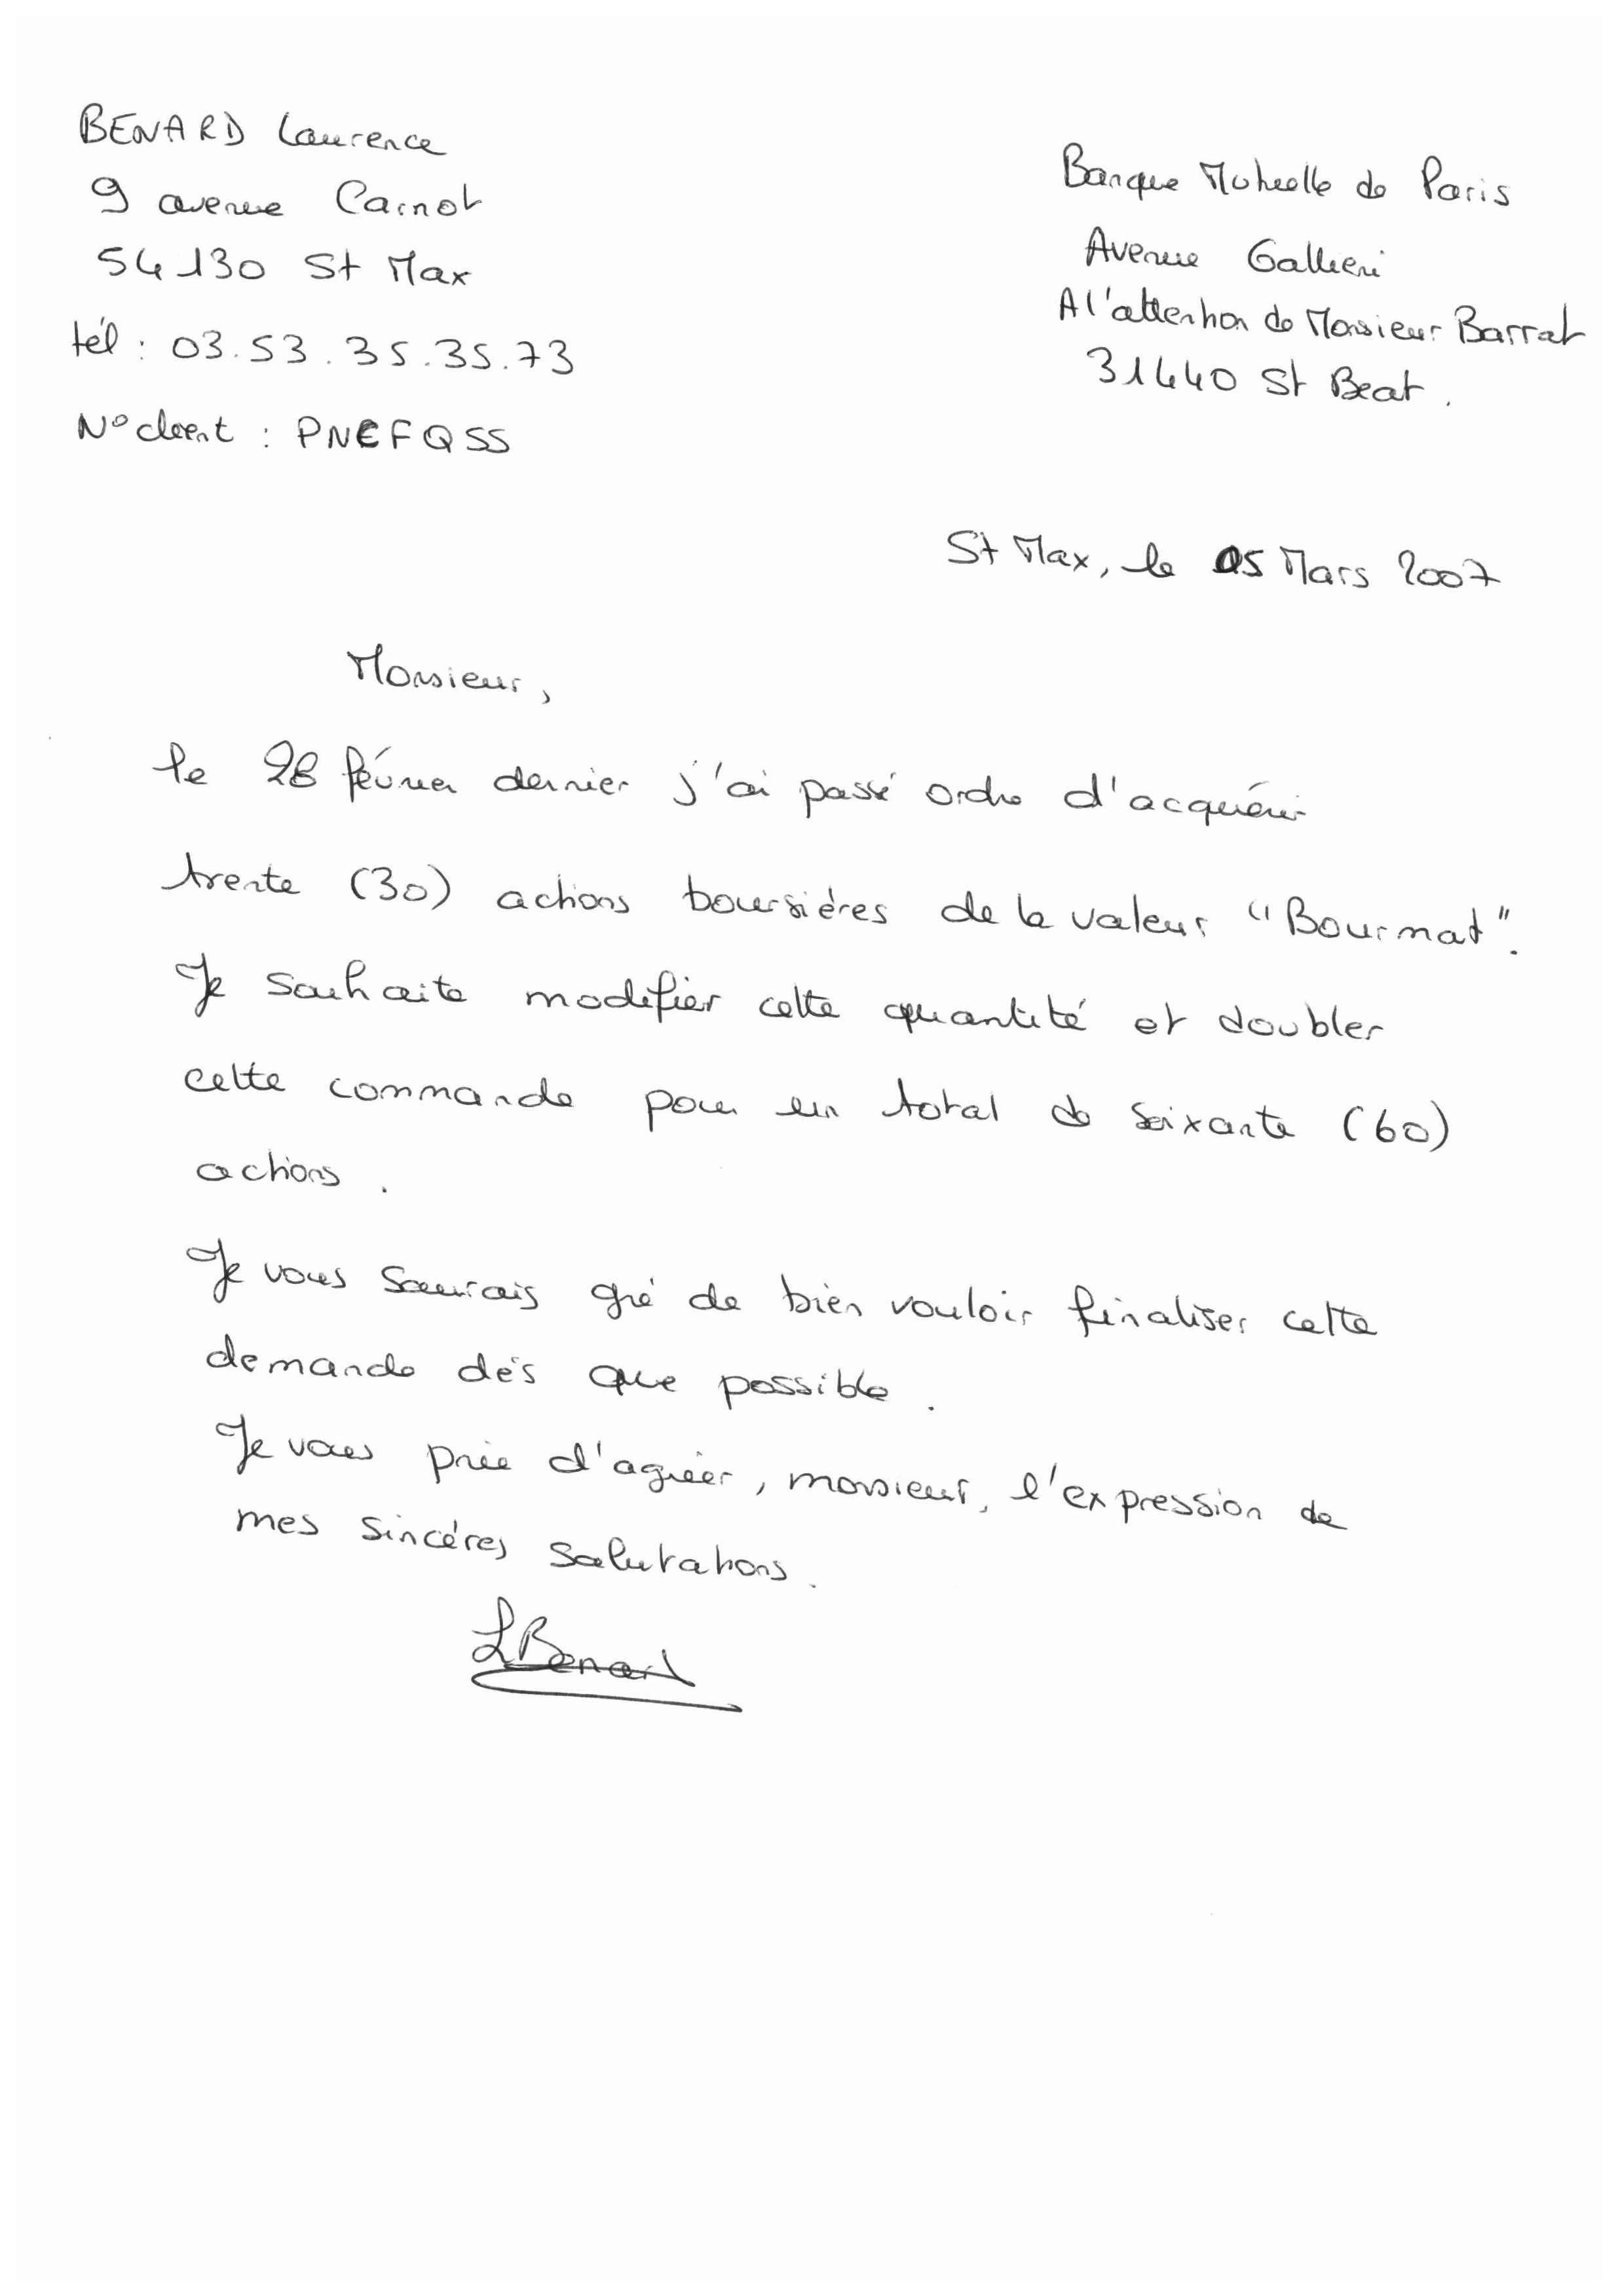 BENARD Laurence
9 avenue Carnot
54130 St Max
tél : 03.53.35.35.73
N° client : PNEFQSS
Banque Mutuelle de Paris
Avenue Gallieni
A l'attention de Monsieur Barrat
31440 St Beat.
St Max, le 05 Mars 2007
Monsieur,
le 28 février dernier j'ai passé ordre d'acquérir
trente (30) actions boursières de la valeur "Bourmat".
Je souhaite modifier cette quantité et doubler
cette commande pour un total de soixante (60)
actions.
Je vous saurais gré de bien vouloir finaliser cette
demande dès que possible.
Je vous prie d'agréer, monsieur, l'expression de
mes sincères salutations.
LBenard